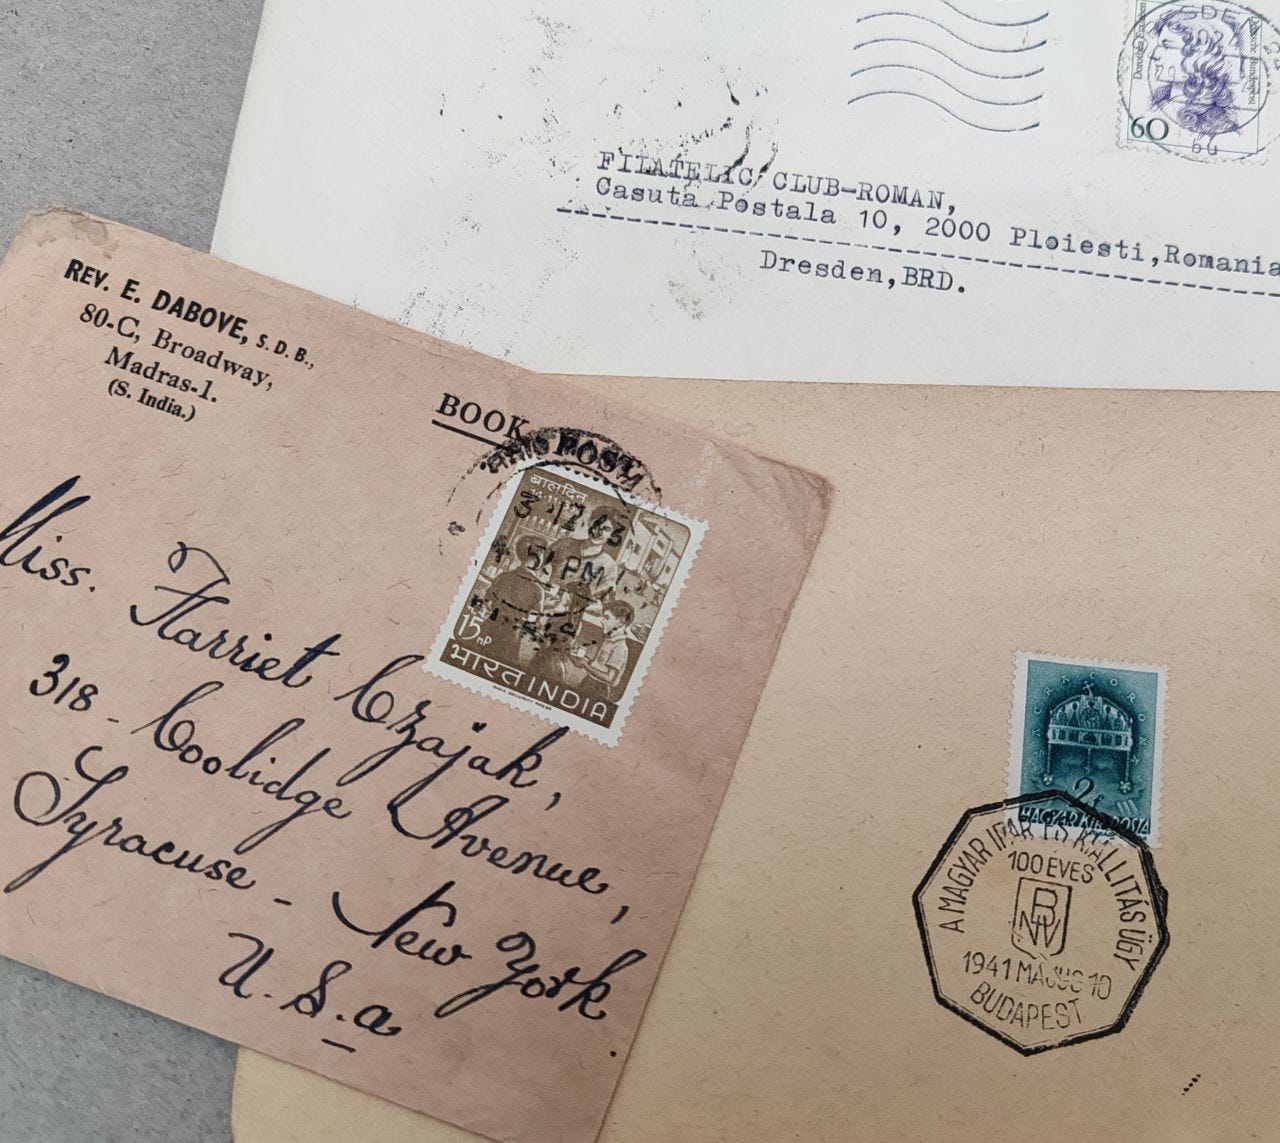 Dorothea Erxleben
Deutsche Bundespost
60
FILATELIC CLUB-ROMAN,
Casuta Postala 10, 2000 Ploiesti,Romania
Dresden,BRD.
REV. E. DABOVE, S. D. B.,
80-C, Broadway,
Madras-1.
(S. India.)
BOOK POST
बालदिन
3 12 63
PM
15 nP
भारत INDIA
INDIA SECURITY PRESS
Miss. Harriet Czajak,
318 - Coolidge Avenue,
Syracuse - New York
U.S.a.
SACRA CORONA
2 f
MAGYAR KIR. POSTA
A MAGYAR IPAR ÉS KIÁLLITÁS ÜGY
100 ÉVES
1941 MÁJUS 10
BUDAPEST